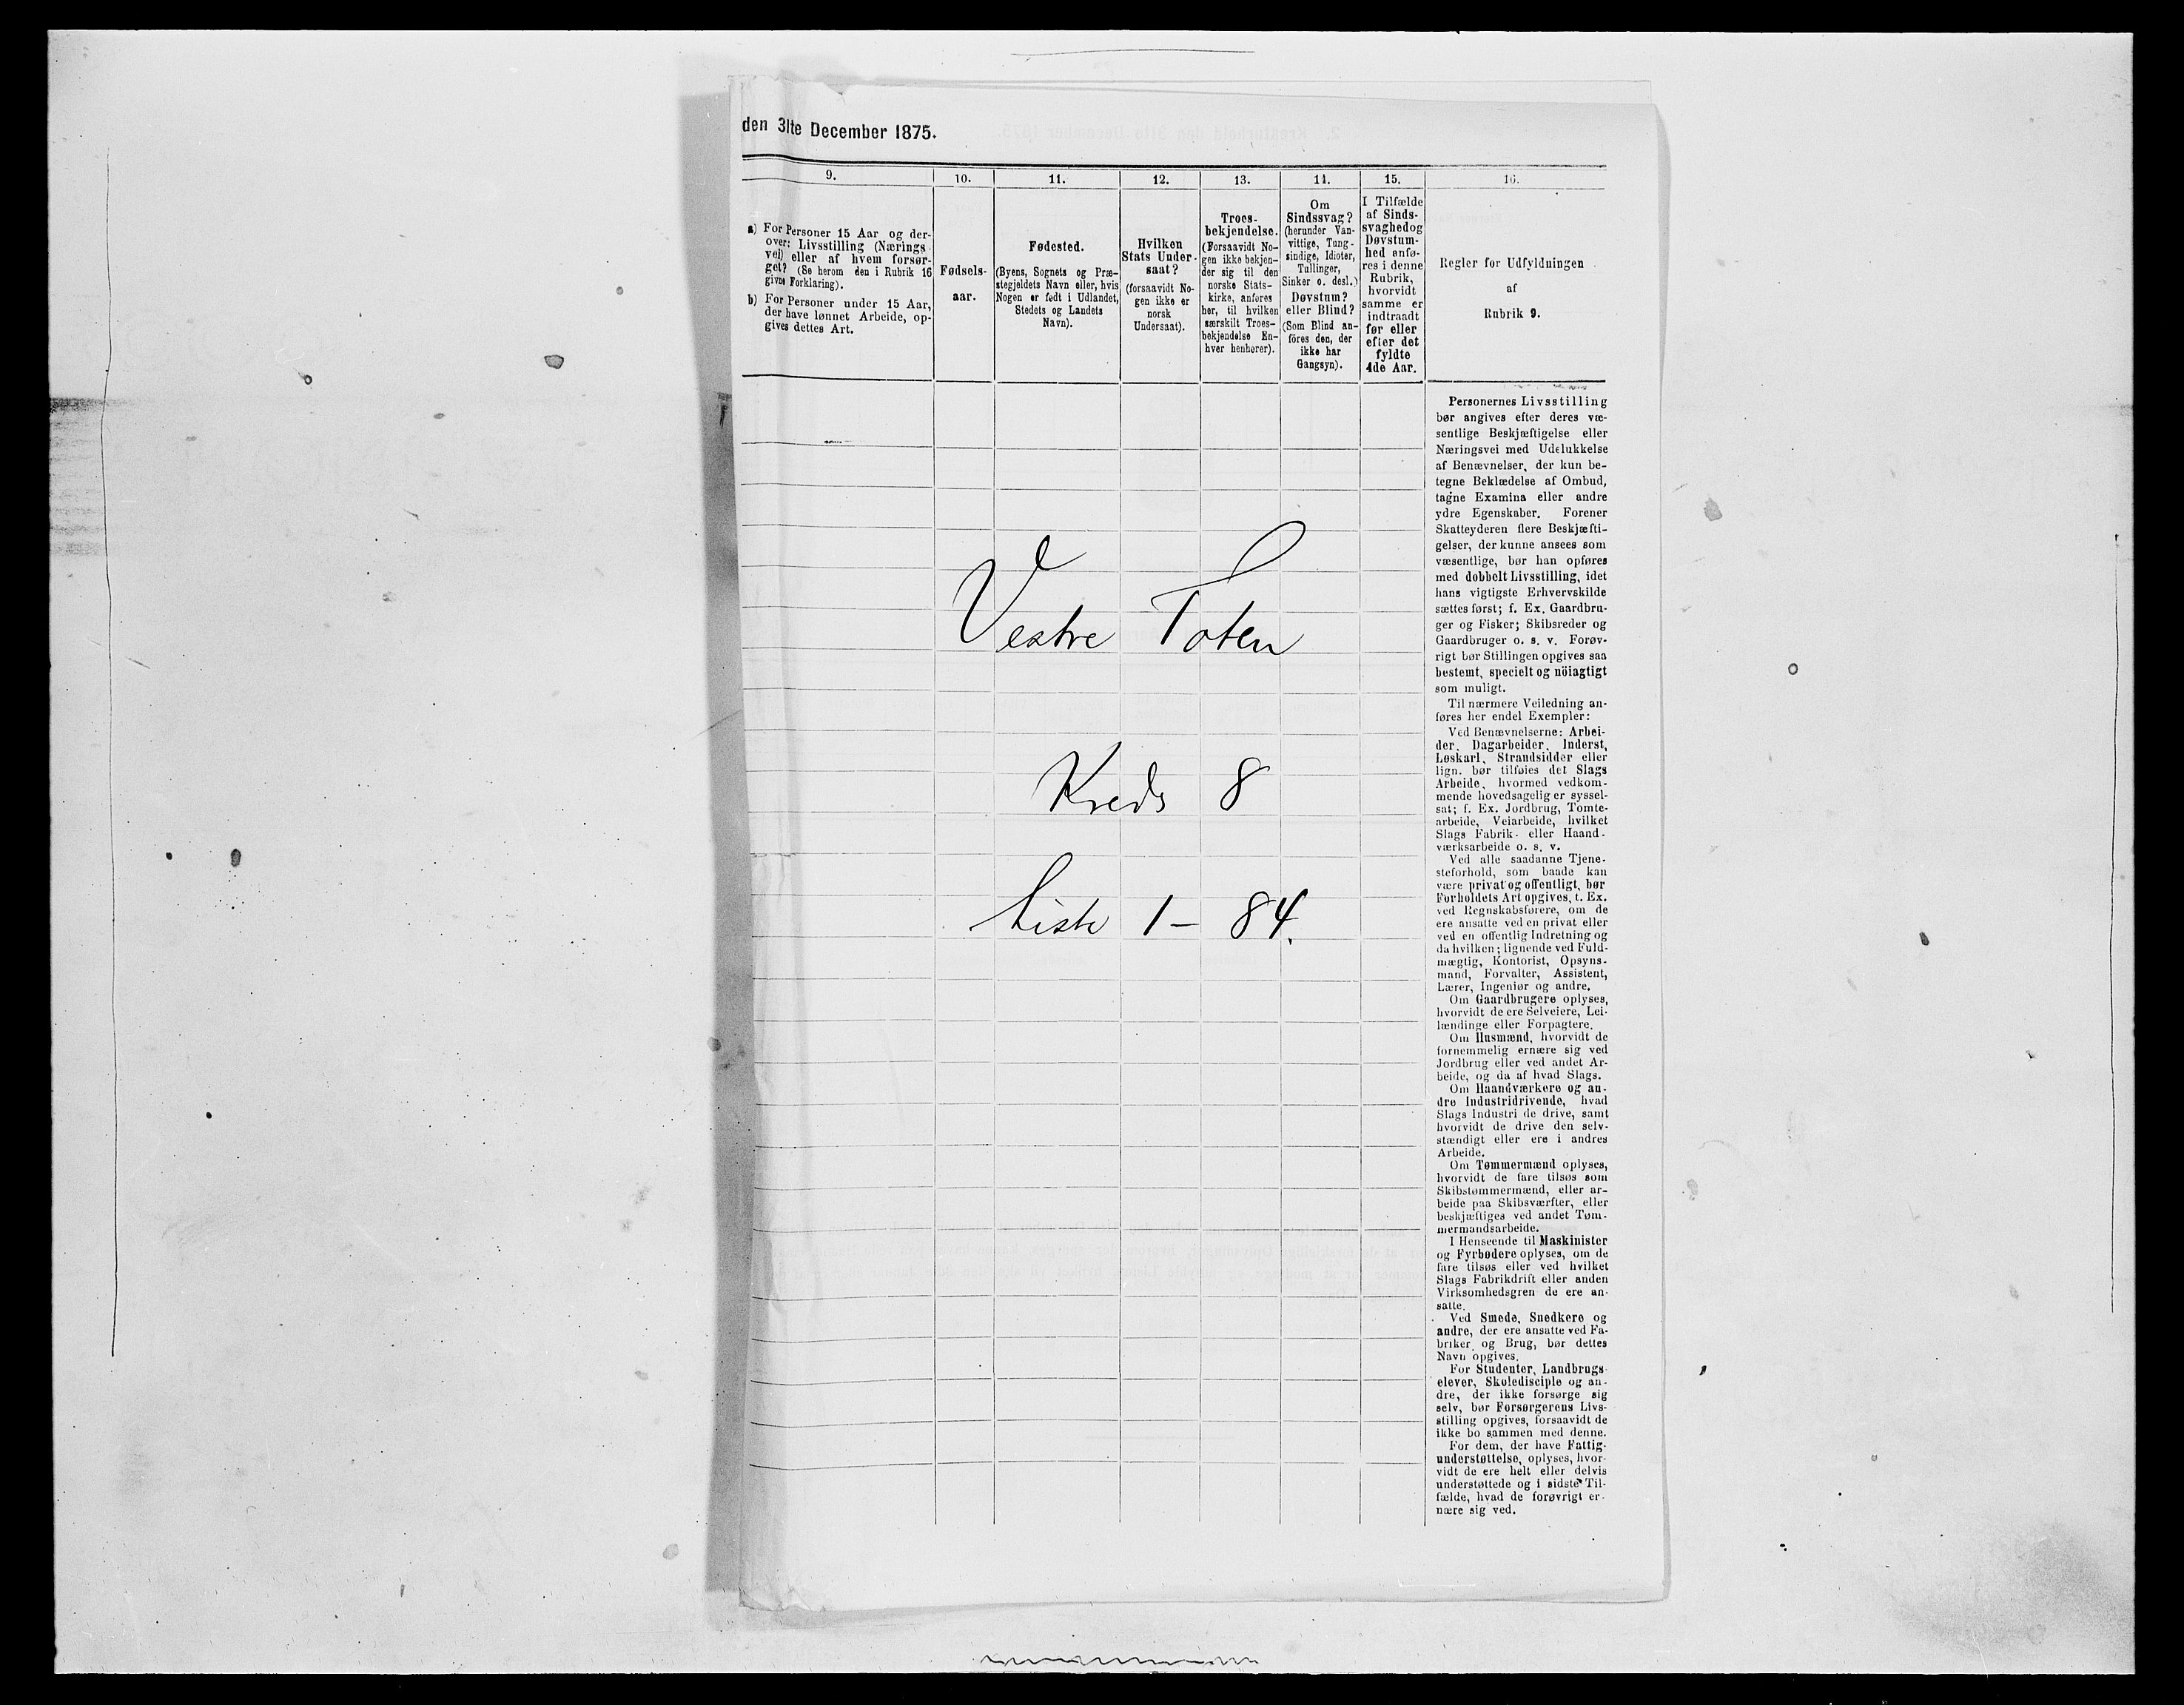 den 31te December 1875.
9.
a) For Personer 15 Aar og der-
over: Livsstilling (Nærings
vei) eller af hvem forsør-
get? (Se herom den i Rubrik 16
givne Forklaring).
b) For Personer under 15 Aar,
der have lønnet Arbeide, op-
gives dettes Art.
10.
Fødsels-
aar.
11.
Fødested.
(Byens, Sognets og Præ-
stegjeldets Navn eller, hvis
Nogen er født i Udlandet,
Stedets og Landets
Navn).
12.
Hvilken
Stats Under-
saat?
(forsaavidt No-
gen ikke er
norsk
Undersaat).
13.
Troes-
bekjendelse.
(Forsaavidt No-
gen ikke bekjen-
der sig til den
norske Stats-
kirke, anføres
her, til hvilken
særskilt Troes-
bekjendelse En-
hver henhører).
14.
Om
Sindssvag?
(herunder Van-
vittige, Tung-
sindige, Idioter,
Tullinger,
Sinker o. desl.)
Døvstum?
eller Blind?
(Som Blind an-
föres den, der
ikke har
Gangsyn).
15.
I Tilfælde
af Sinds-
svaghedog
Døvstum-
hed anfø-
res i denne
Rubrik,
hvorvidt
samme er
indtraadt
før eller
efter det
fyldte
4de Aar.
16.
Regler for Udfyldningen
af
Rubrik 9.
Personernes Livsstilling
bør angives efter deres væ-
sentlige Beskjæftigelse eller
Næringsvei med Udelukkelse
af Benævnelser, der kun be-
tegne Beklædelse af Ombud,
tagne Examina eller andre
ydre Egenskaber. Forener
Skatteyderen flere Beskjæfti-
gelser, der kunne ansees som
væsentlige, bør han opføres
med dobbelt Livsstilling, idet
hans vigtigste Erhvervskilde
sættes først; f. Ex. Gaardbru-
ger og Fisker; Skibsreder og
Gaardbruger o. s. v. Forøv-
rigt bør Stillingen opgives saa
bestemt, specielt og nöiagtigt
som muligt.
Til nærmere Veiledning an-
føres her endel Exempler:
Ved Benævnelserne: Arbei-
der, Dagarbeider, Inderst,
Løskarl, Strandsidder eller
lign. bør tilføies det Slags
Arbeide, hvormed vedkom-
mende hovedsagelig er syssel-
sat; f. Ex. Jordbrug, Tomte-
arbeide, Veiarbeide, hvilket
Slags Fabrik- eller Haand-
værksarbeide o. s. v.
Ved alle saadanne Tjene-
steforhold, som baade kan
være privat og offentligt, bør
Forholdets Art opgives, t. Ex.
ved Regnskabsførere, om de
ere ansatte ved en privat eller
ved en offentlig Indretning og
da hvilken; lignende ved Fuld-
mægtig, Kontorist, Opsyns-
mand, Forvalter, Assistent,
Lærer, Ingeniør og andre.
Om Gaardbrugere oplyses,
hvorvidt de ere Selveiere, Lei-
lændinge eller Forpagtere.
Om Husmænd, hvorvidt de
fornemmelig ernære sig ved
Jordbrug eller ved andet Ar-
beide, og da af hvad Slags.
Om Haandværkere og an-
dre Industridrivende, hvad
Slags Industri de drive, samt
hvorvidt de drive den selv-
stændigt eller ere i andres
Arbeide.
Om Tømmermænd oplyses,
hvorvidt de fare tilsøs som
Skibstømmermænd, eller ar-
beide paa Skibsværfter, eller
beskjæftiges ved andet Tøm-
mermandsarbeide.
I Henseende til Maskinister
og Fyrbødere oplyses, om de
fare tilsøs eller ved hvilket
Slags Fabrikdrift eller anden
Virksomhedsgren de ere an-
satte.
Ved Smede, Snedkere og
andre, der ere ansatte ved Fa-
briker og Brug, bør dettes
Navn opgives.
For Studenter, Landbrugs-
elever, Skoledisciple og an-
dre, der ikke forsørge sig
selv, bør Forsørgerens Livs-
stilling opgives, forsaavidt de
ikke bo sammen med denne.
For dem, der have Fattig-
understøttelse, oplyses, hvor-
vidt de ere helt eller delvis
understøttede og i sidste Til-
fælde, hvad de forøvrigt er-
nære sig ved.
Vestre Toten
Kreds 8
Liste 1 – 84.